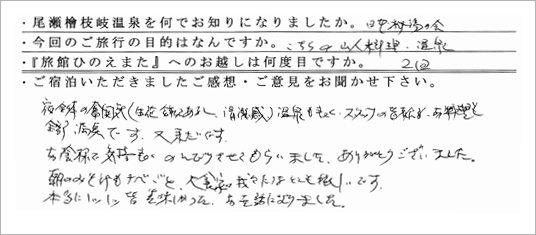 ・尾瀬檜枝岐温泉を何でお知りになりましたか。日本秘湯の会
・今回のご旅行の目的はなんですか。こちらの山人料理・温泉
・『旅館ひのえまた』へのお越しは何度目ですか。2回
・ご宿泊いただきましたご感想・ご意見をお聞かせ下さい。
宿全体の雰囲気(清潔感)温泉もよく、スタッフの皆様、お料理と
全部満足です。又来たいです。
お陰様で気持よくのんびりさせてもらいました。ありがとうございました。
朝のみそ汁もすべごと、大食家の我々にはとても嬉しいです。
本当に皆美味しかった。お世話になりました。